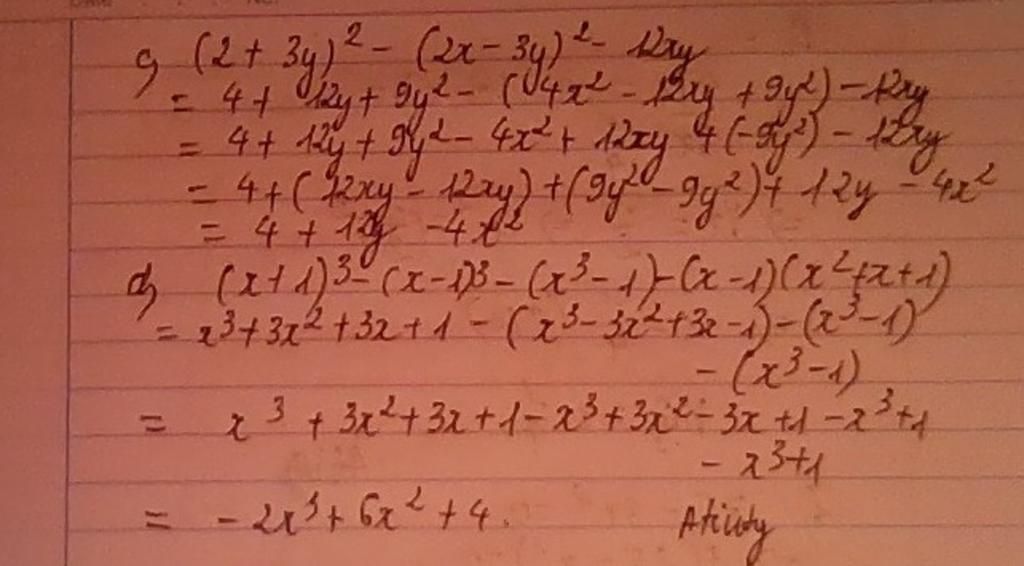 c, (2 + 3y)² - (2x - 3y)² - 12xy
= 4 + 12y + 9y² - (4x² - 12xy + 9y²) - 12xy
= 4 + 12y + 9y² - 4x² + 12xy + (-9y²) - 12xy
= 4 + (12xy - 12xy) + (9y² - 9y²) + 12y - 4x²
= 4 + 12y - 4x²
d, (x+1)³ - (x-1)³ - (x³-1) - (x-1)(x²+x+1)
= x³ + 3x² + 3x + 1 - (x³ - 3x² + 3x - 1) - (x³-1)
- (x³-1)
= x³ + 3x² + 3x + 1 - x³ + 3x² - 3x + 1 - x³ + 1
- x³ + 1
= - 2x³ + 6x² + 4.